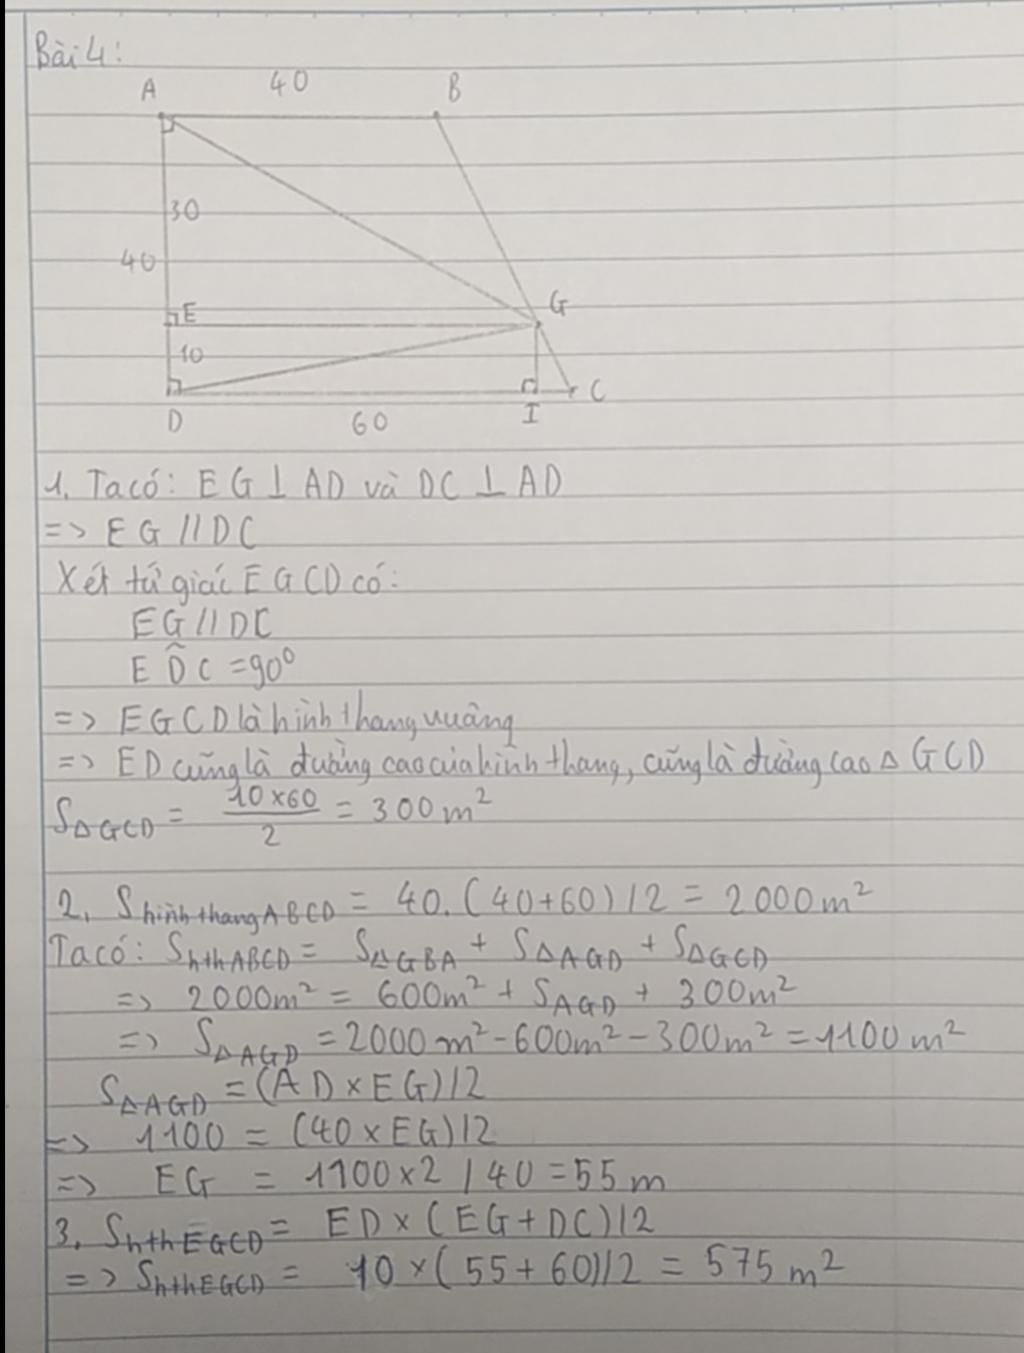 Bài 4:
A 40 B
30
40
E G
10
D 60 I C
1. Ta có: EG ⊥ AD và DC ⊥ AD
=> EG // DC
Xét tứ giác EGCD có:
EG // DC
ED̂C = 90⁰
=> EGCD là hình thang vuông
=> ED cũng là đường cao của hình thang, cũng là đường cao Δ GCD
SΔGCD = 10×60/2 = 300 m²
2. Shình thang ABCD = 40.(40+60)/2 = 2000 m²
Ta có: ShthABCD = SΔGBA + SΔAGD + SΔGCD
=> 2000m² = 600m² + SAGD + 300m²
=> SΔAGD = 2000 m² - 600m² - 300m² = 1100 m²
SΔAGD = (AD × EG)/2
=> 1100 = (40 × EG)/2
=> EG = 1100×2 / 40 = 55 m
3. ShthEGCD = ED × (EG + DC)/2
=> ShthEGCD = 10 × (55 + 60)/2 = 575 m²